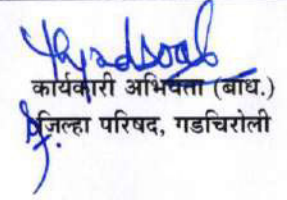 कार्यकारी अभियंता (बांध.)
जिल्हा परिषद, गडचिरोली